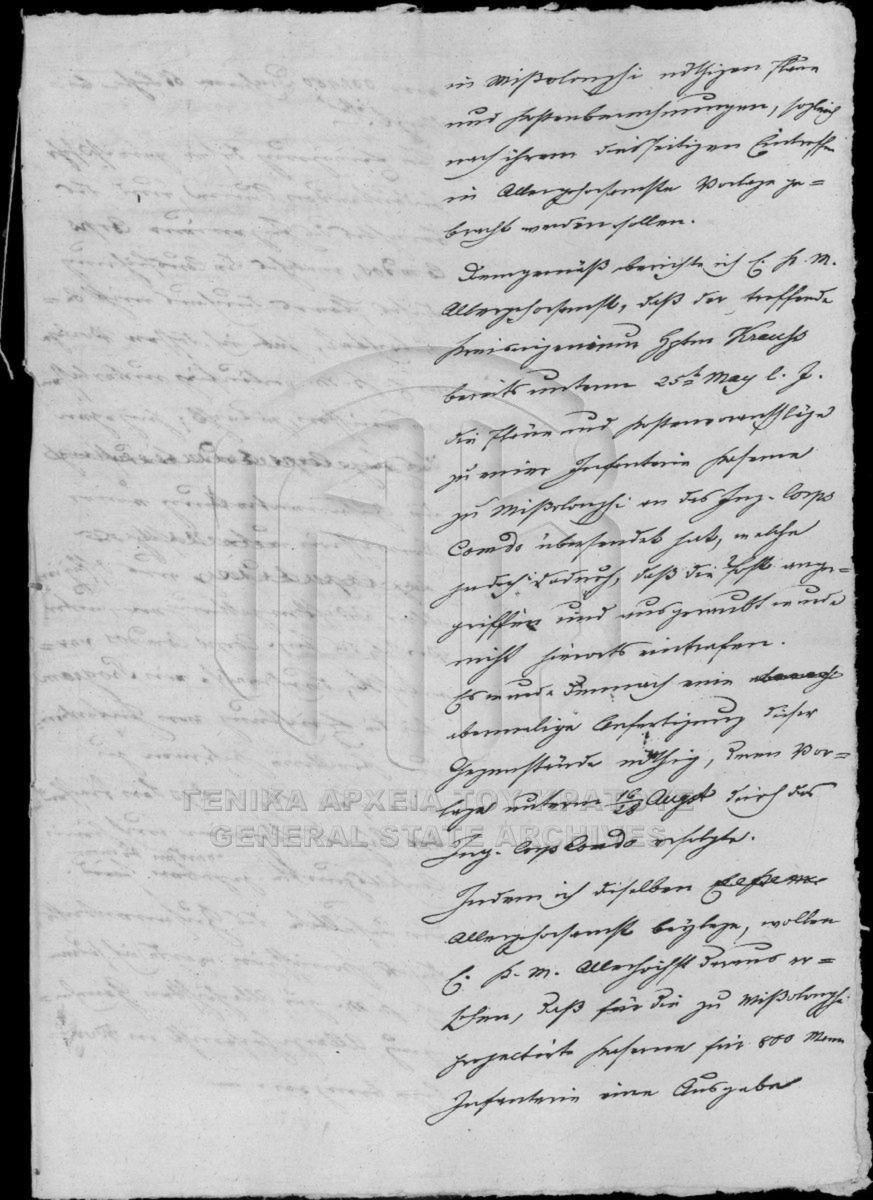 in Mißolonghi nöthigen Pläne
und Kostenberechnungen, sogleich
nach ihrem diesseitigen Eintreffen
in Allergehorsamste Vorlage ge=
bracht werden sollen.
Demgemäß berichte ich E. K. M.
Allergehorsamst, daß der treffende
Kreisingenieur Hptm Krauß
bereits unterm 25ten May l. J.
die Pläne und Kostenvoranschläge
zu einer Infanterie Kaserne
zu Mißolonghi an das Ing. Corps
Comdo übersendet hat, welche
jedoch dadurch, daß die Post ange=
griffen und ausgeraubt wurde
nicht hierorts eintrafen.
Es wurde demnach eine
abermalige Anfertigung dieser
Gegenstände nöthig, deren Vor=
lage unterm 16/28 Augst durch das
Ing. Corps Comdo erfolgte.
Indem ich dieselben
Allergehorsamst beylege, wollen
E. K. M. Allerhöchst daraus er=
sehen, daß für die zu Mißolonghi
projectirte Kaserne für 800 Mann
Infanterie eine Ausgabe
ΓΕΝΙΚΑ ΑΡΧΕΙΑ ΤΟΥ ΚΡΑΤΟΥΣ
GENERAL STATE ARCHIVES